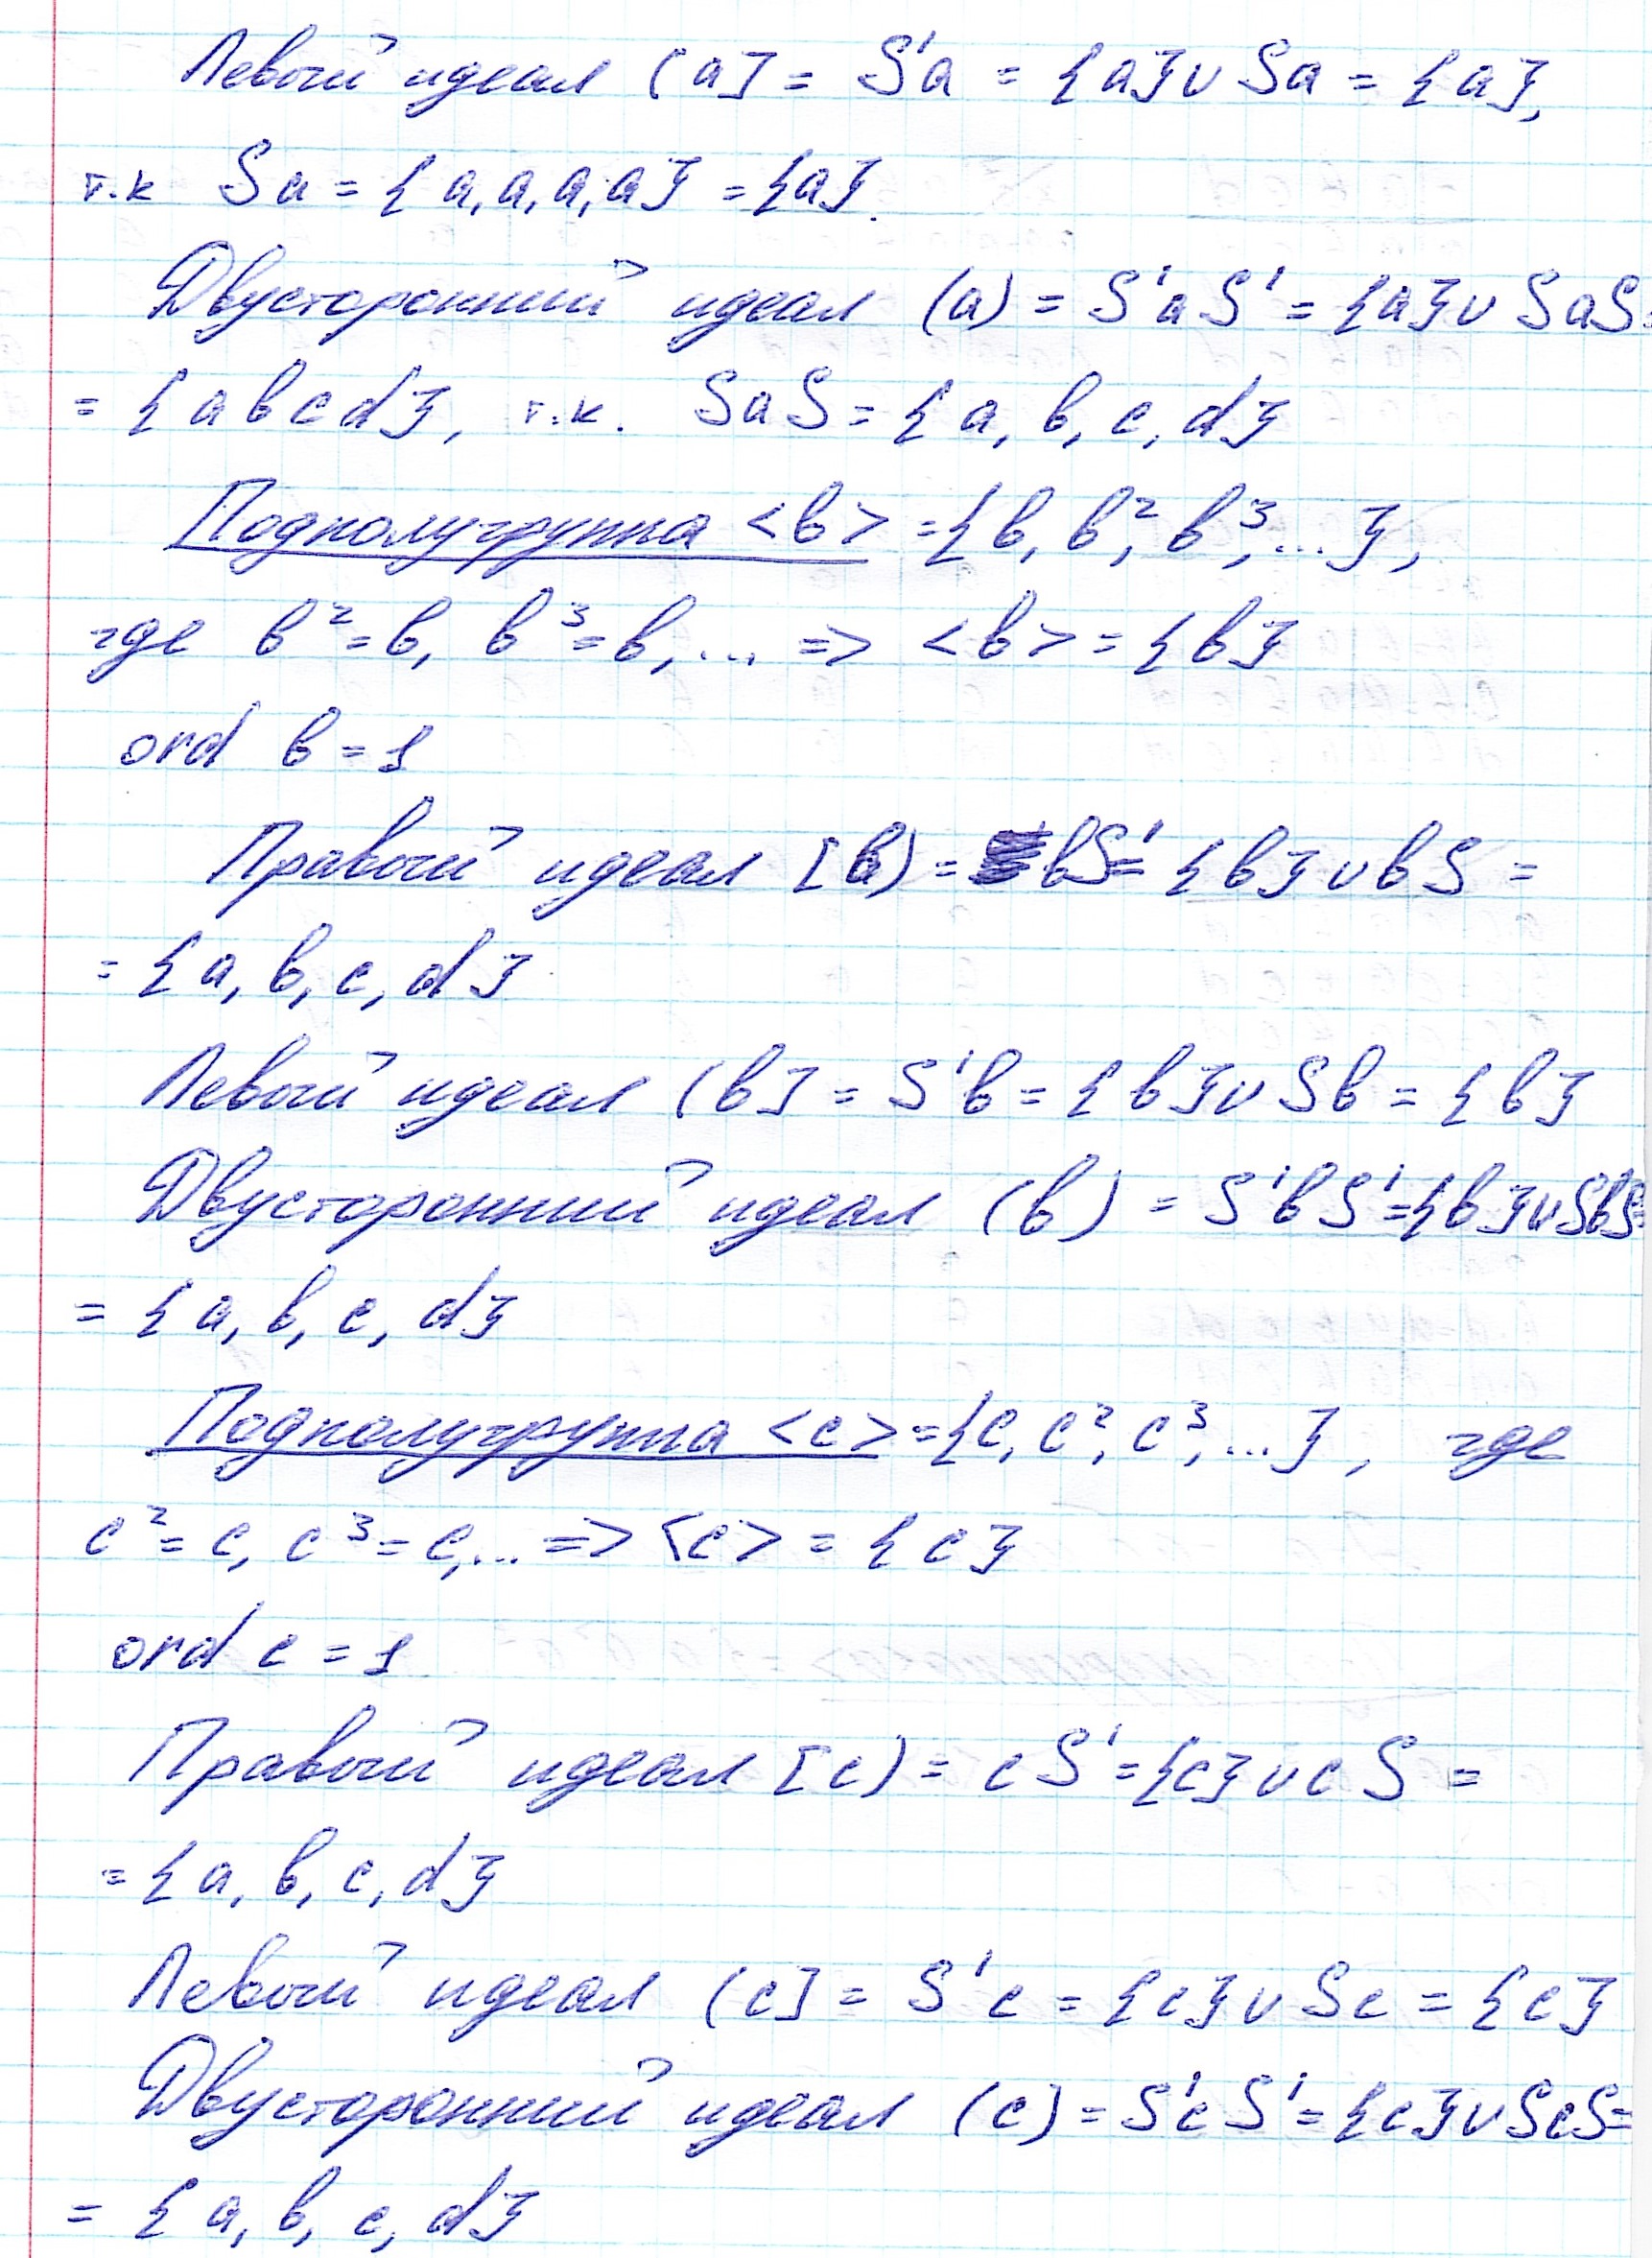 Левый идеал (a] = S¹a = {a}∪Sa = {a},
т.к Sa = {a, a, a, a} = {a}.
Двусторонний идеал (a) = S¹aS¹ = {a}∪SaS =
= {a b c d}, т.к. SaS = {a, b, c, d}
Подполугруппа <b> = {b, b², b³, ...},
где b² = b, b³ = b, ... => <b> = {b}
ord b = 1
Правый идеал [b) = bS¹ = {b}∪bS =
= {a, b, c, d}
Левый идеал (b] = S¹b = {b}∪Sb = {b}
Двусторонний идеал (b) = S¹bS¹ = {b}∪SbS =
= {a, b, c, d}
Подполугруппа <c> = {c, c², c³, ...}, где
c² = c, c³ = c, ... => <c> = {c}
ord c = 1
Правый идеал [c) = cS¹ = {c}∪cS =
= {a, b, c, d}
Левый идеал (c] = S¹c = {c}∪Sc = {c}
Двусторонний идеал (c) = S¹cS¹ = {c}∪ScS =
= {a, b, c, d}